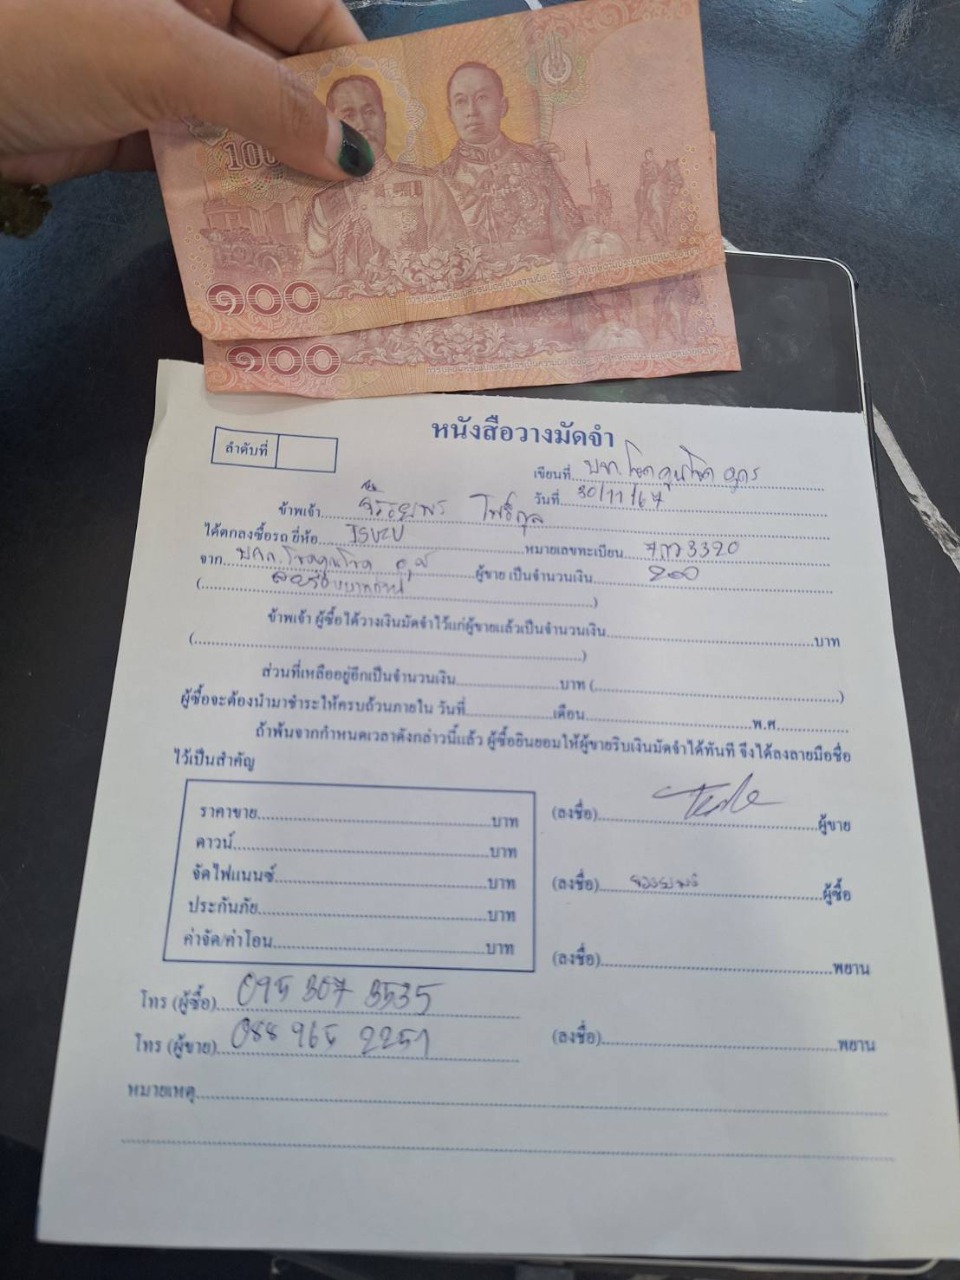 100
๑๐๐
๑๐๐
หนังสือวางมัดจำ
ลำดับที่
เขียนที่
วันที่ 30/11/67
ข้าพเจ้า
ได้ตกลงซื้อรถ ยี่ห้อ ISUZU หมายเลขทะเบียน
จาก ผู้ขาย เป็นจำนวนเงิน 200
( )
ข้าพเจ้า ผู้ซื้อได้วางเงินมัดจำไว้แก่ผู้ขายแล้วเป็นจำนวนเงิน บาท
( )
ส่วนที่เหลืออยู่อีกเป็นจำนวนเงิน บาท ( )
ผู้ซื้อจะต้องนำมาชำระให้ครบถ้วนภายใน วันที่ เดือน พ.ศ.
ถ้าพ้นจากกำหนดเวลาดังกล่าวนี้แล้ว ผู้ซื้อยินยอมให้ผู้ขายริบเงินมัดจำได้ทันที จึงได้ลงลายมือชื่อ
ไว้เป็นสำคัญ
ราคาขาย บาท
ดาวน์ บาท
จัดไฟแนนซ์ บาท
ประกันภัย บาท
ค่าจัด/ค่าโอน บาท
(ลงชื่อ) ผู้ขาย
(ลงชื่อ) ผู้ซื้อ
(ลงชื่อ) พยาน
(ลงชื่อ) พยาน
โทร (ผู้ซื้อ) 095 307 3535
โทร (ผู้ขาย) 088 965 2251
หมายเหตุ